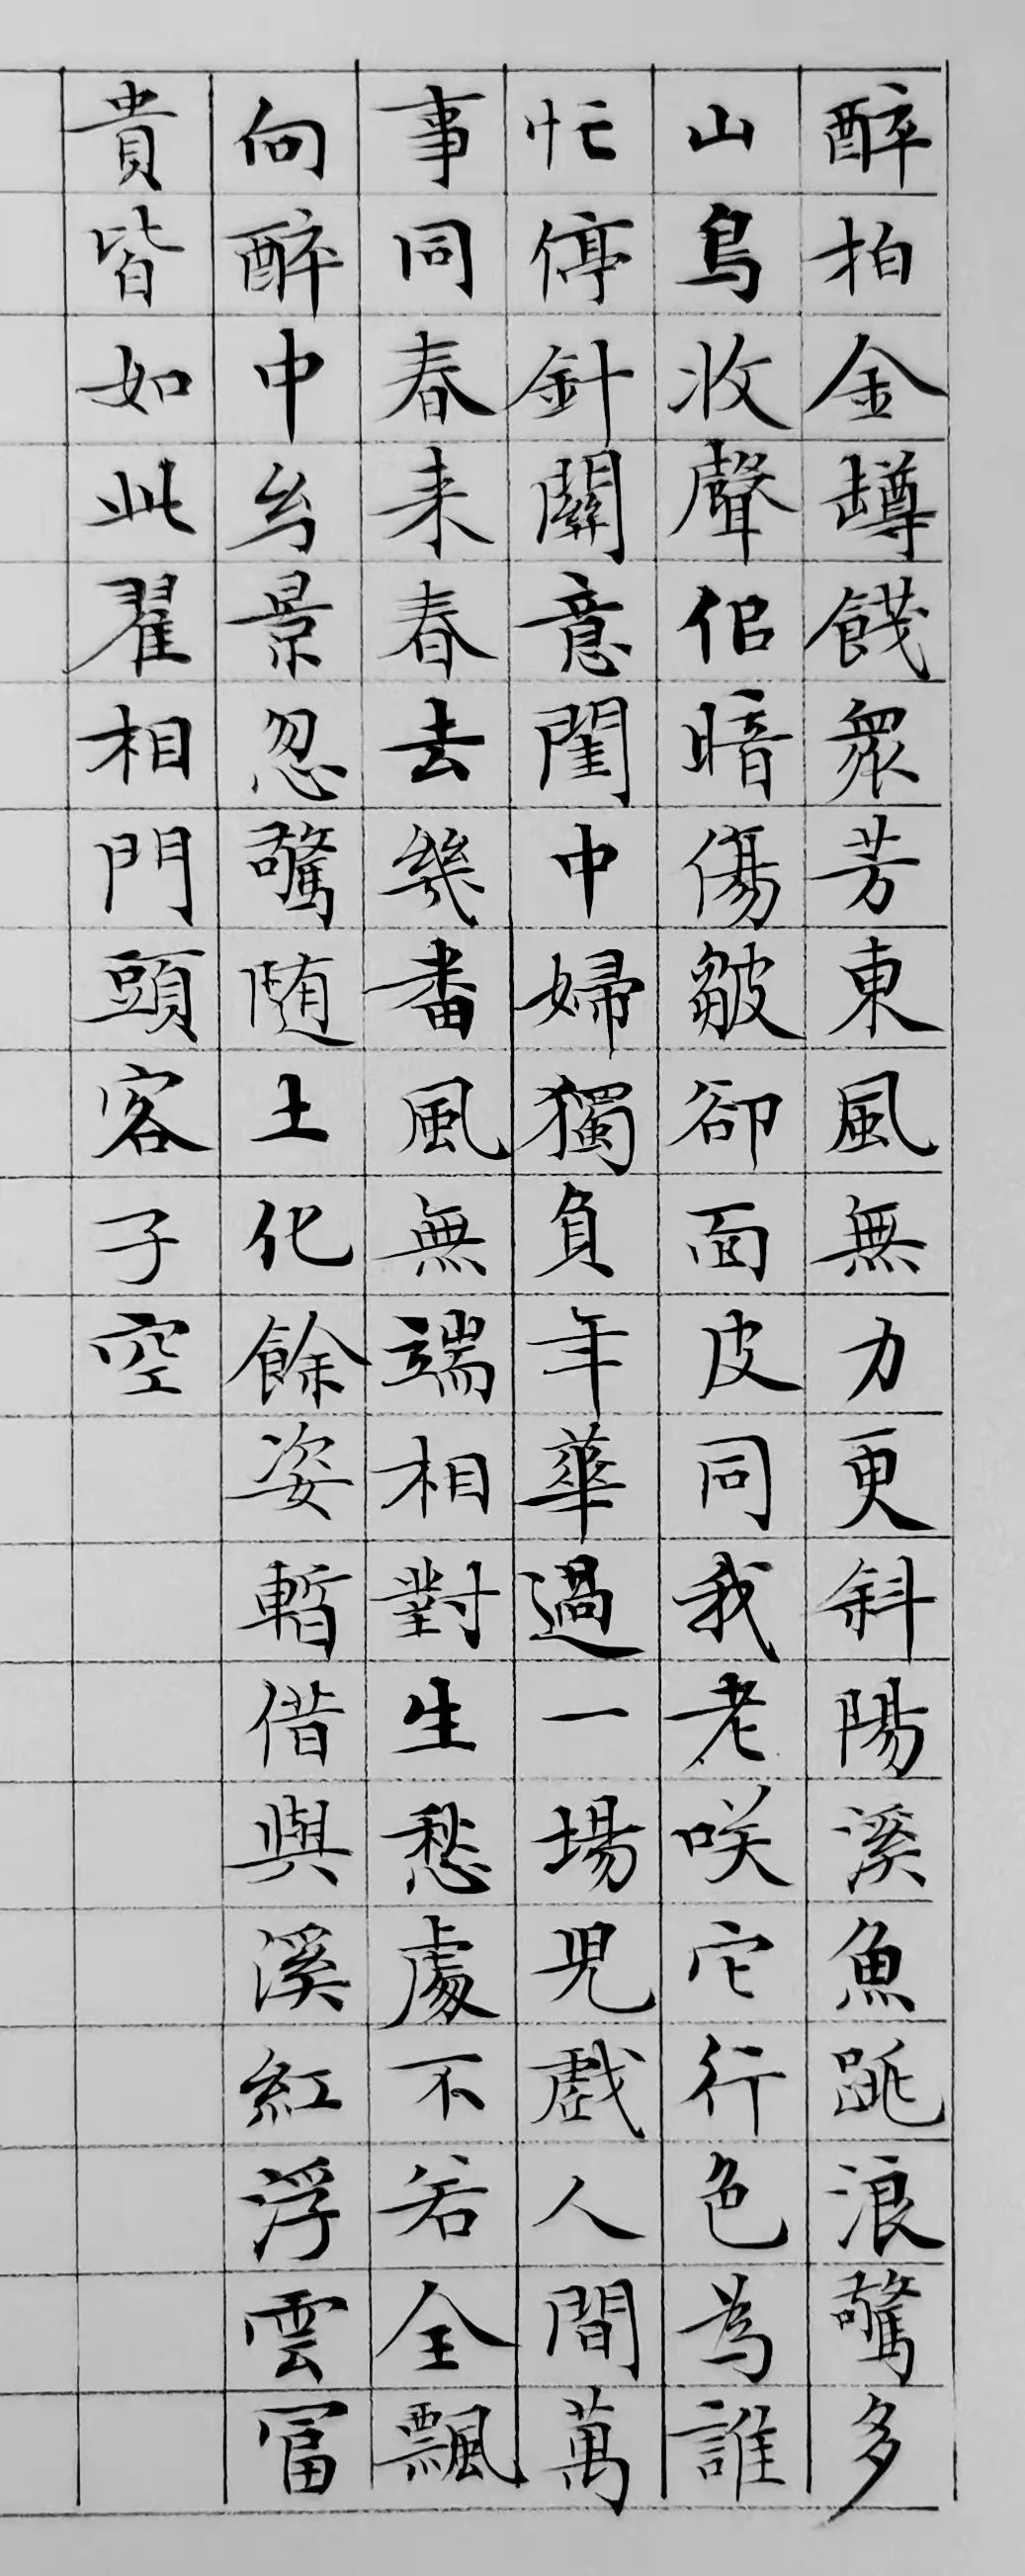 醉拍金罇餞衆芳東風無力更斜陽溪魚跳浪驚多
山鳥收聲侶暗傷皺卻面皮同我老咲它行色為誰
忙停針關意閨中婦獨負年華過一場兒戲人間萬
事同春来春去幾番風無端相對生愁處不若全飄
向醉中幻景忽驚随土化餘姿暫借與溪紅浮雲冨
貴皆如此翟相門頭客子空